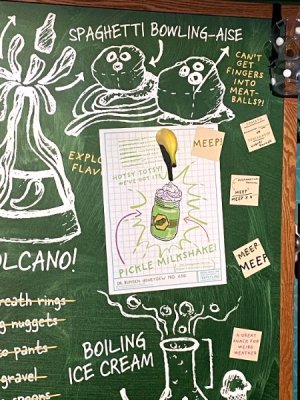 SPAGHETTI BOWLING-AISE
CAN'T
GET
FINGERS
INTO
MEAT-
BALLS?!
EXPLO
FLAV
HOTSY TOTSY!
WE'VE GOT IT!
MEEP!
MEEP
MEEP X 4
PICKLE MILKSHAKE!
DR. BUNSEN HONEYDEW
MEEP
MEEP
OLCANO!
reath rings
g nuggets
o pants
gravel
spoons
BOILING
ICE CREAM
A GREAT
SNACK FOR
WEIRD
WEATHER